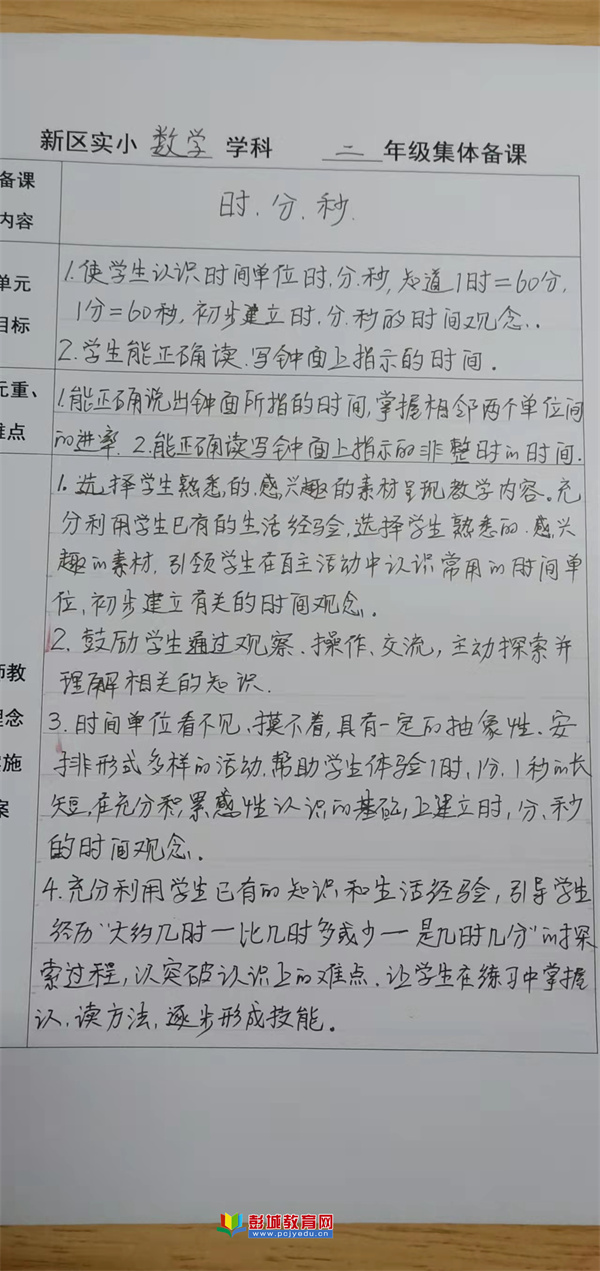 新区实小 数学 学科 二 年级集体备课
备课
内容
时.分.秒.
单元
目标
1.使学生认识时间单位时.分.秒,知道1时=60分,
1分=60秒,初步建立时.分.秒的时间观念..
2.学生能正确读.写钟面上指示的时间.
元重、
难点
1.能正确说出钟面所指的时间,掌握相邻两个单位间
的进率.2.能正确读写钟面上指示的非整时的时间.
1.选择学生熟悉的.感兴趣的素材呈现教学内容。充
分利用学生已有的生活经验,选择学生熟悉的.感兴
趣的素材,引领学生在自主活动中认识常用的时间单
位,初步建立有关的时间观念.
2.鼓励学生通过观察.操作、交流,主动探索并
理解相关的知识.
师教
理念
实施
案
3.时间单位看不见、摸不着,具有一定的抽象性.安
排形式多样的活动.帮助学生体验1时,1分.1秒的长
短,在充分积累感性认识的基础上建立时,分、秒
的时间观念.
4.充分利用学生已有的知识和生活经验,引导学生
经历“大约几时—比几时多或少—是几时几分”的探
索过程,以突破认识上的难点.让学生在练习中掌握
认.读方法,逐步形成技能。
彭城教育网
www.pcjyedu.cn